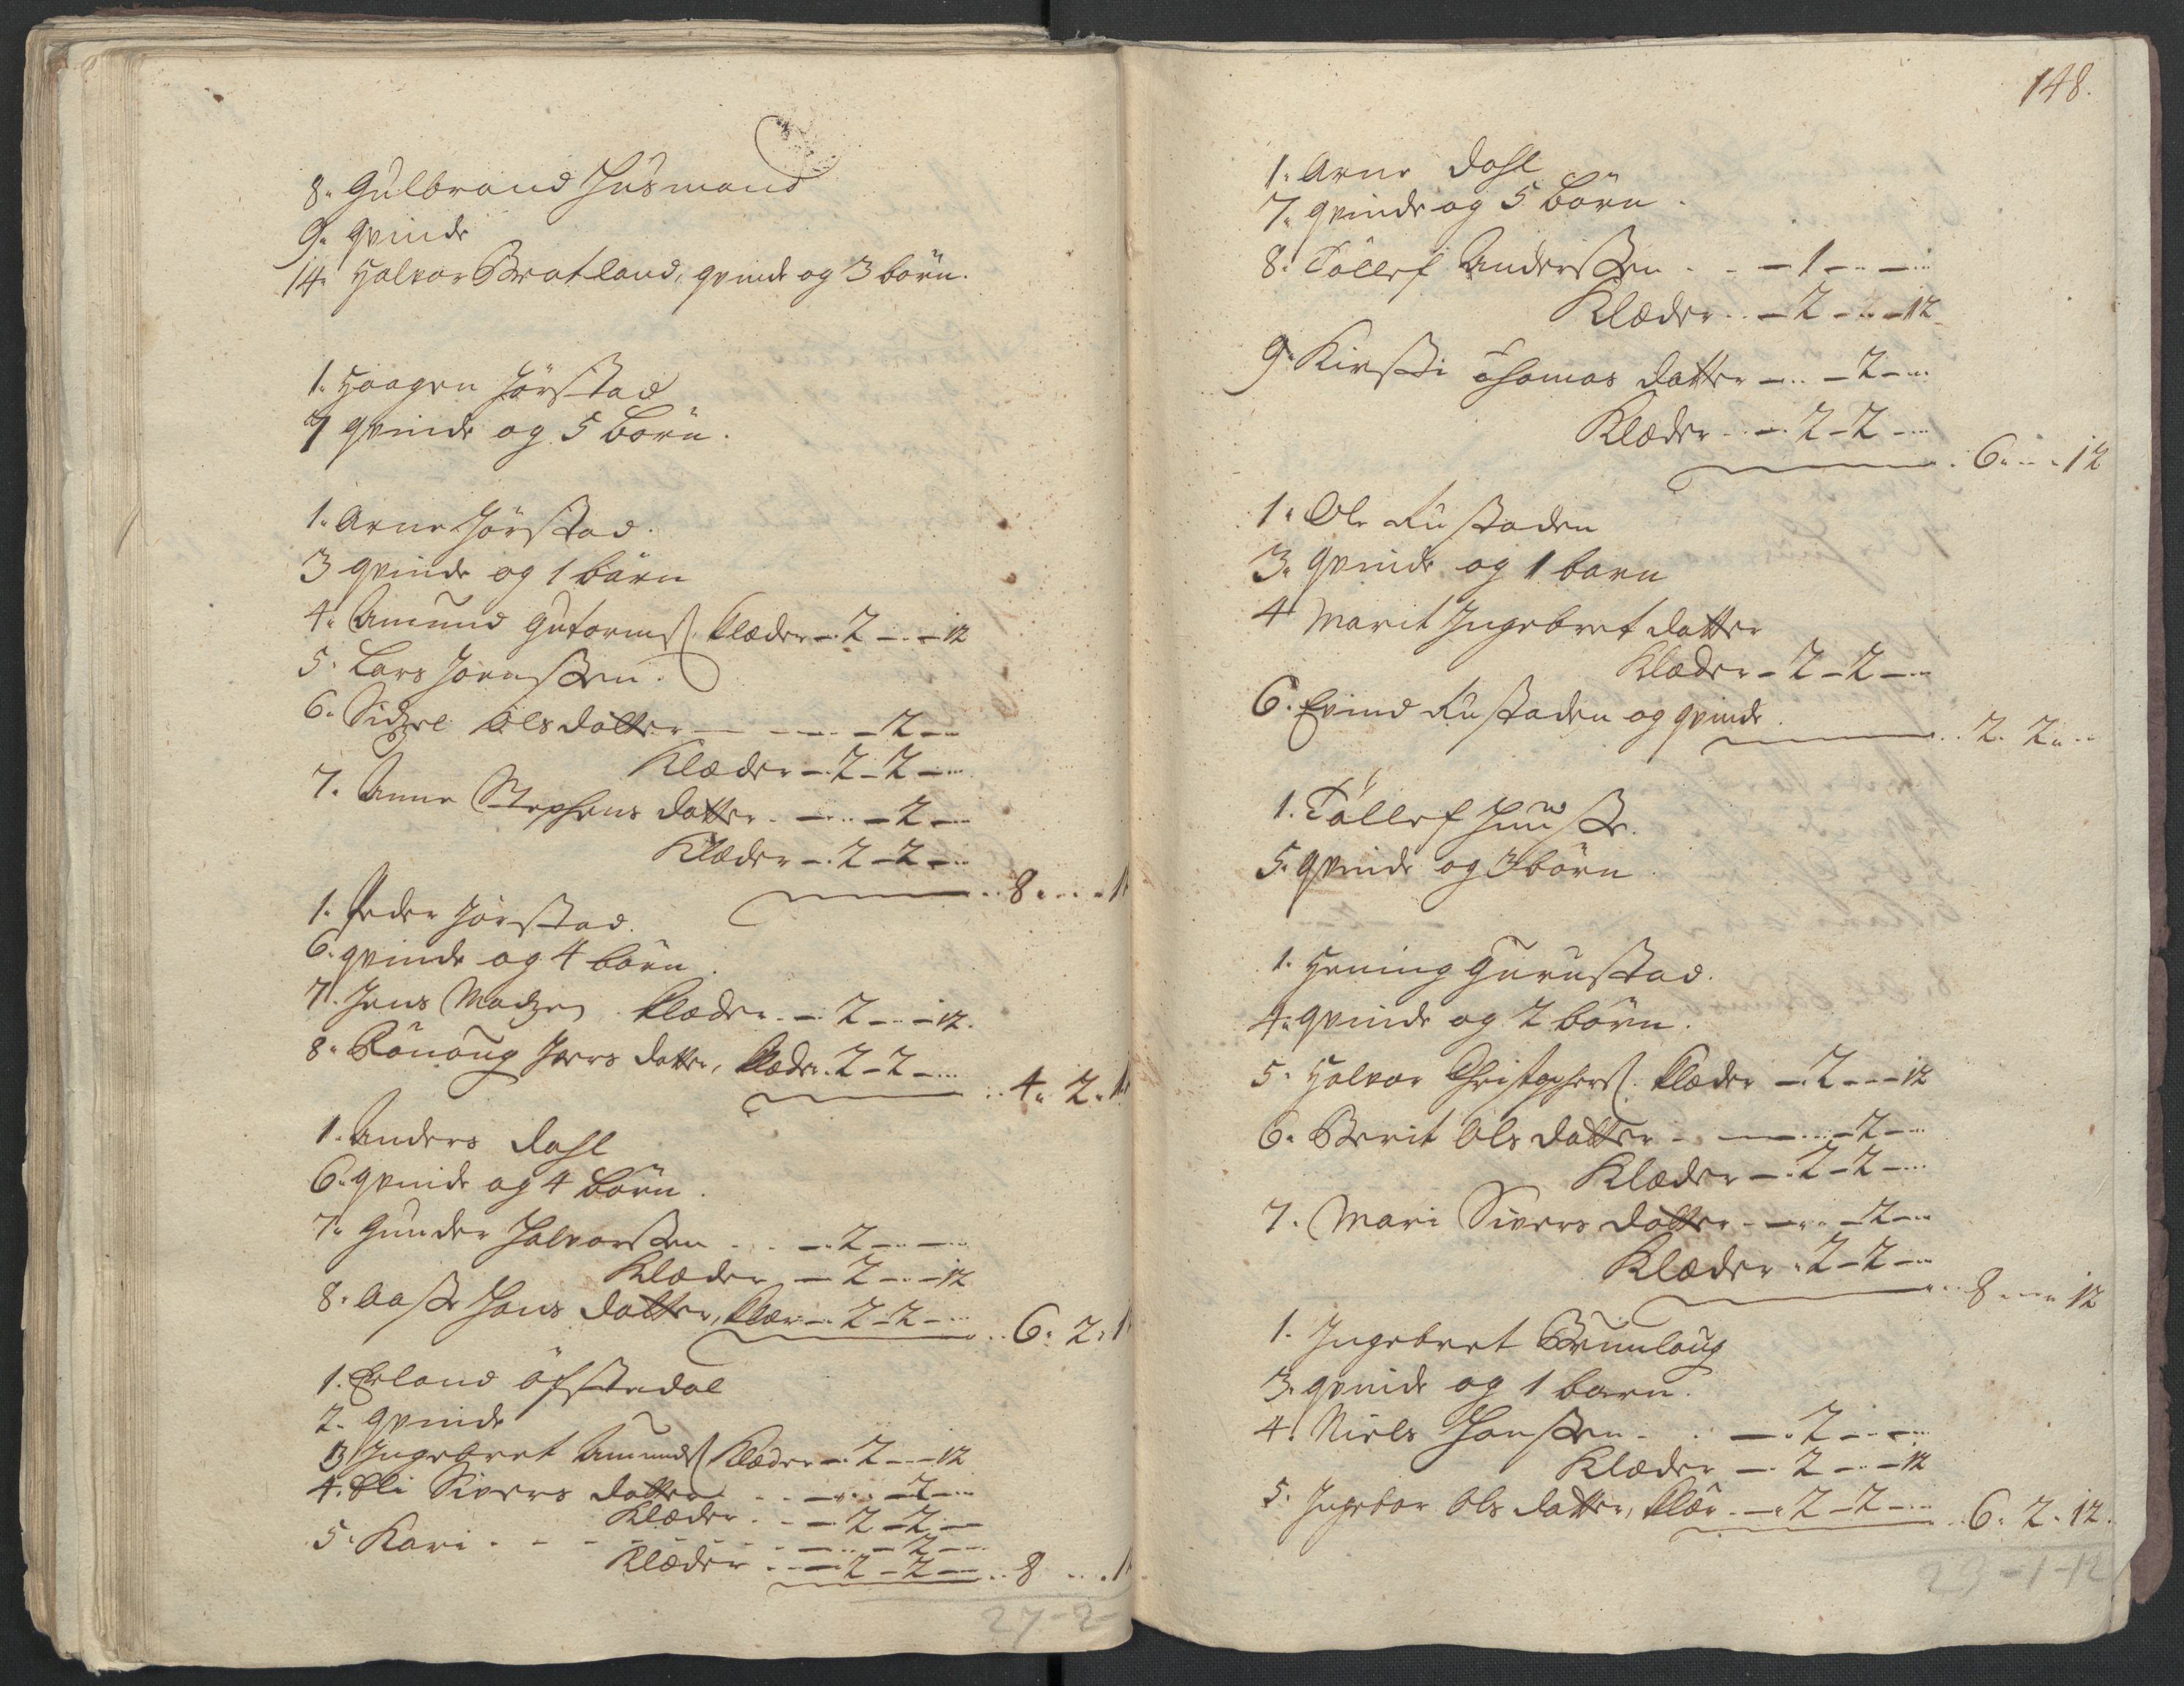 8. Gulbrand Husmand
9. qvinde
14. Halvor Bratland, qvinde og 3 börn.
1. Haagen Jörstad
7 qvinde og 5 Börn.
1. Arne Jörstad.
3 qvinde og 1 barn
4. Amund Gutormß. Klæder - 2 - - 12
5. Lars Jörenßen.
6. Sidzel Olsdatter - - 2 -
Klæder - 2 - 2 -
7. Anne Stephens datter - - 2 -
Klæder - 2 - 2 -
8 . . 1
1. Peder Jörstad.
6. qvinde og 4 börn.
7. Jens Madzen Klæder - 2 - - 12.
8. Rönoug Ivers datter, Klæder. 2 - 2 -
4. 2. 1
1. Anders Dahl
6. qvinde og 4 Börn.
7. Gunder Halvorßen . . - 2 - -
Klæder - 2 - - 12
8. Aaße Hans datter, Klær - 2 - 2 -
6. 2. 1
1. Erland Öfstedal
2. qvinde
3 Ingebret Amundß. Klæder - 2 - - 12
4. Eli Sivers datter . . - - 2 -
Klæder . - 2 - 2 -
5. Kari . - - - - 2 -
Klæder . - 2 - 2 - . . 8 . . 1
27 - 2 -
148.
1. Arne Dahl
7. qvinde og 5 Börn.
8. Töllef Anderßen . . - 1 - -
Klæder . - 2 - - 12
9. Kirsti Thomas datter - . - 2 -
Klæder . - 2 - 2 -
6. . . 12
1. Ole Rustaden
3. qvinde og 1 barn
4 Marit Ingebret datter
Klæder - 2 - 2 -
6. Evind Rustaden og qvinde.
2. 2. .
1. Töllef
5. qvinde og 3 börn
1. Hening Gurustad.
4. qvinde og 2 börn.
5. Halvor Christophersß. Klæder - 2 - - 12
6. Berit Ols datter - - 2 -
Klæder - 2 - 2 -
7. Mari Sivers datter - - 2 -
Klæder . 2 - 2 -
8 - - 12
1. Ingebret Brunlaug
3. qvinde og 1 barn.
4. Niels Hanßen . . - 2 - -
Klæder - 2 - - 12
5. Ingebor Ols datter, Klær - 2 - 2 -
6. 2. 12.
23 - 1 - 12